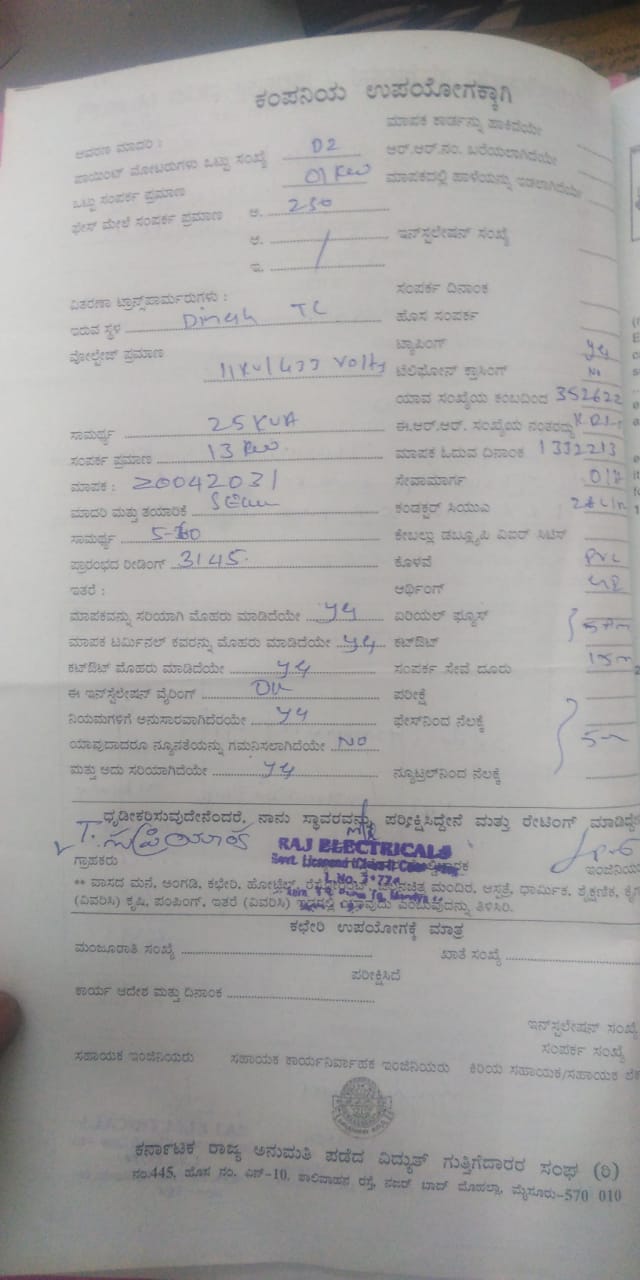 ಕಂಪನಿಯ ಉಪಯೋಗಕ್ಕಾಗಿ
ಆವರಣ ಮಾದರಿ :
ಮಾಪಕ ಕಾರ್ಡನ್ನು ಹಾಕಿದೆಯೇ
ಪಾಯಿಂಟ್ ಮೋಟರುಗಳು ಒಟ್ಟು ಸಂಖ್ಯೆ 02
ಆರ್.ಆರ್.ನಂ. ಬರೆಯಲಾಗಿದೆಯೇ
ಒಟ್ಟು ಸಂಪರ್ಕ ಪ್ರಮಾಣ 01 Kw
ಮಾಪಕದಲ್ಲಿ ಹಾಳೆಯನ್ನು ಇಡಲಾಗಿದೆಯೇ
ಫೇಸ್ ಮೇಲೆ ಸಂಪರ್ಕ ಪ್ರಮಾಣ ಅ. 250
ಆ.
ಇನ್‌ಸ್ಟಲೇಷನ್ ಸಂಖ್ಯೆ
ಇ.
ವಿತರಣಾ ಟ್ರಾನ್ಸ್‌ಫಾರ್ಮರುಗಳು :
ಸಂಪರ್ಕ ದಿನಾಂಕ
ಇರುವ ಸ್ಥಳ Dinesh TC
ಹೊಸ ಸಂಪರ್ಕ
ವೋಲ್ಟೇಜ್ ಪ್ರಮಾಣ 11KV/433 Volts
ಟ್ಯಾಪಿಂಗ್
ಟೆಲಿಫೋನ್ ಕ್ರಾಸಿಂಗ್ No
ಯಾವ ಸಂಖ್ಯೆಯ ಕಂಬದಿಂದ 352622
ಸಾಮರ್ಥ್ಯ 25 KVA
ಈ.ಆರ್.ಆರ್. ಸಂಖ್ಯೆಯ ನಂತರದ್ದು
ಸಂಪರ್ಕ ಪ್ರಮಾಣ 13 Kw
ಮಾಪಕ ಓದುವ ದಿನಾಂಕ 1332213
ಮಾಪಕ : 20042031
ಸೇವಾಮಾರ್ಗ
ಮಾದರಿ ಮತ್ತು ತಯಾರಿಕೆ
ಕಂಡಕ್ಟರ್ ಸಿಯುಎ
ಸಾಮರ್ಥ್ಯ
ಕೇಬಲ್ಲು ಡಬ್ಲ್ಯೂಪಿ ಏಐರ್ ಸಿಟಿಸ್
ಪ್ರಾರಂಭದ ರೀಡಿಂಗ್ 3145
ಕೊಳವೆ PVC
ಇತರೆ :
ಆರ್ಥಿಂಗ್
ಮಾಪಕವನ್ನು ಸರಿಯಾಗಿ ಮೊಹರು ಮಾಡಿದೆಯೇ
ಏರಿಯಲ್ ಫ್ಯೂಸ್
ಮಾಪಕ ಟರ್ಮಿನಲ್ ಕವರನ್ನು ಮೊಹರು ಮಾಡಿದೆಯೇ
ಕಟ್‌ಔಟ್
ಕಟ್‌ಔಟ್ ಮೊಹರು ಮಾಡಿದೆಯೇ
ಸಂಪರ್ಕ ಸೇವೆ ದೂರು 15m
ಈ ಇನ್‌ಸ್ಟಲೇಷನ್ ವೈರಿಂಗ್ OK
ಪರೀಕ್ಷೆ
ನಿಯಮಗಳಿಗೆ ಅನುಸಾರವಾಗಿದೆರಯೇ
ಫೇಸ್‌ನಿಂದ ನೆಲಕ್ಕೆ
ಯಾವುದಾದರೂ ನ್ಯೂನತೆಯನ್ನು ಗಮನಿಸಲಾಗಿದೆಯೇ NO
ಮತ್ತು ಅದು ಸರಿಯಾಗಿದೆಯೇ
ನ್ಯೂಟ್ರಲ್‌ನಿಂದ ನೆಲಕ್ಕೆ
ಧೃಡೀಕರಿಸುವುದೇನೆಂದರೆ, ನಾನು ಸ್ಥಾವರವನ್ನು ಪರೀಕ್ಷಿಸಿದ್ದೇನೆ ಮತ್ತು ರೇಟಿಂಗ್ ಮಾಡಿದ್ದೇ
T. ಸುಪ್ರಿಯಾ
RAJ ELECTRICALS
ಗ್ರಾಹಕರು
ಇಂಜಿನಿಯ
** ವಾಸದ ಮನೆ, ಅಂಗಡಿ, ಕಛೇರಿ, ಹೋಟೆಲ್, ಚಲನಚಿತ್ರ ಮಂದಿರ, ಆಸ್ಪತ್ರೆ, ಧಾರ್ಮಿಕ, ಶೈಕ್ಷಣಿಕ, ಕೈಗ
(ವಿವರಿಸಿ) ಕೃಷಿ, ಪಂಪಿಂಗ್, ಇತರೆ (ವಿವರಿಸಿ) ಇದರಲ್ಲಿ ಯಾವುದು ಎಂಬುವುದನ್ನು ತಿಳಿಸಿರಿ.
ಕಛೇರಿ ಉಪಯೋಗಕ್ಕೆ ಮಾತ್ರ
ಮಂಜೂರಾತಿ ಸಂಖ್ಯೆ
ಖಾತೆ ಸಂಖ್ಯೆ
ಪರೀಕ್ಷಿಸಿದೆ
ಕಾರ್ಯ ಆದೇಶ ಮತ್ತು ದಿನಾಂಕ
ಇನ್‌ಸ್ಟಲೇಷನ್ ಸಂಖ್ಯೆ
ಸಂಪರ್ಕ ಸಂಖ್ಯೆ
ಸಹಾಯಕ ಇಂಜಿನಿಯರು ಸಹಾಯಕ ಕಾರ್ಯನಿರ್ವಾಹಕ ಇಂಜಿನಿಯರು ಕಿರಿಯ ಸಹಾಯಕ/ಸಹಾಯಕ ಲೆ
ಕರ್ನಾಟಕ ರಾಜ್ಯ ಅನುಮತಿ ಪಡೆದ ವಿದ್ಯುತ್ ಗುತ್ತಿಗೆದಾರರ ಸಂಘ (ರಿ)
ನಂ.445, ಹೊಸ ನಂ. ಎನ್-10, ಶಾಲಿವಾಹನ ರಸ್ತೆ, ನಜರ್ ಬಾದ್ ಮೊಹಲ್ಲಾ, ಮೈಸೂರು-570 010